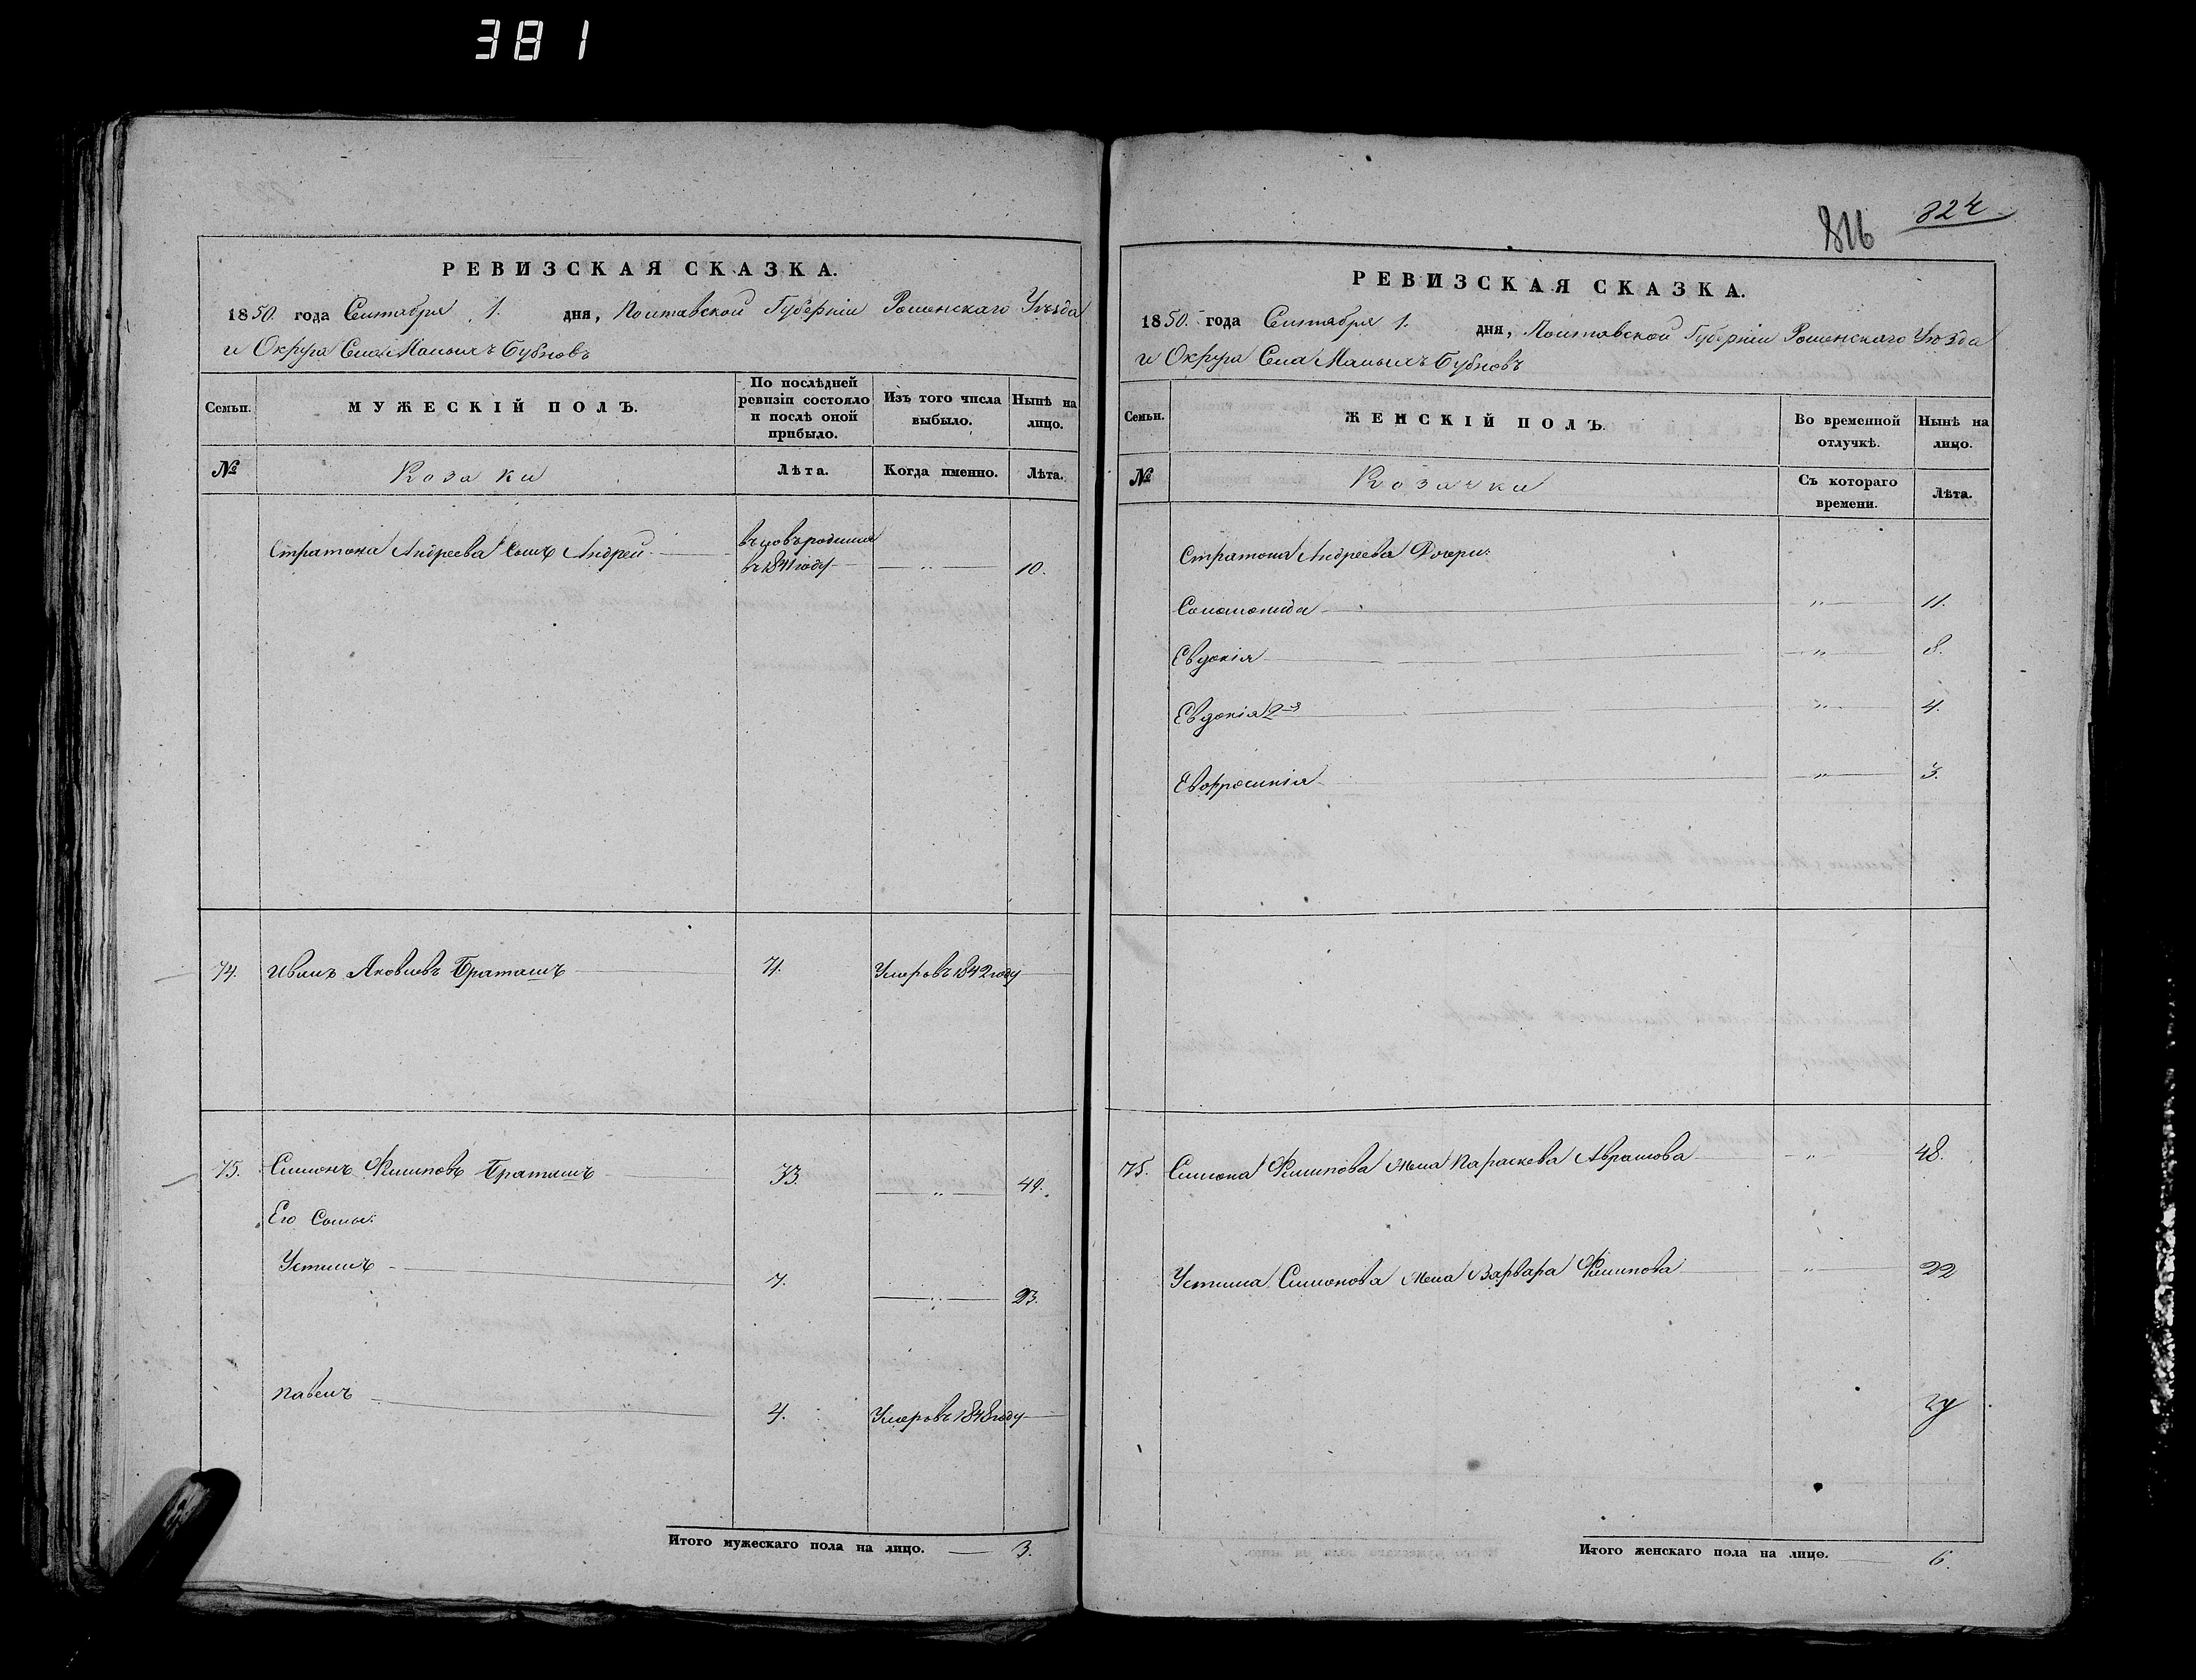 381
РЕВИЗСКАЯ СКАЗКА.
1850. года Сентября 1. дня, Полтавской Губерніи Роменскаго Уѣзда
и Округа Села Малыхъ Бубновъ
Семьи.
МУЖЕСКІЙ ПОЛЪ.
По послѣдней ревизіи состояло и послѣ оной прибыло.
Изъ того числа выбыло.
Нынѣ на лицо.
№
Козаки
Лѣта.
Когда именно.
Лѣта.
Стратона Андреева сынъ Андрей
въ 1841 году
10.
74. Иванъ Яковлевъ Браташъ 71. Умеръ въ 1842 году
75. Симонъ Филиповъ Браташъ 33. 49.
Его Сыны:
Устимъ 7. 23.
Павелъ 4. Умеръ въ 1848 году
Итого мужескаго пола на лицо. 3.
816 824
РЕВИЗСКАЯ СКАЗКА.
1850. года Сентября 1. дня, Полтавской Губерніи Роменскаго Уѣзда
и Округа Села Малыхъ Бубновъ
Семьи.
ЖЕНСКІЙ ПОЛЪ.
Во временной отлучкѣ.
Нынѣ на лицо.
№
Козачки
Съ котораго времени.
Лѣта.
Стратона Андреева Дочери:
Соломонида " 11.
Евдокія " 8.
Евдокія 2я " 4.
Евфросинія " 3.
75. Симона Филипова жена Параскева Абрамова " 48.
Устима Симонова жена Варвара Филипова " 22
Итого женскаго пола на лицо. 6.